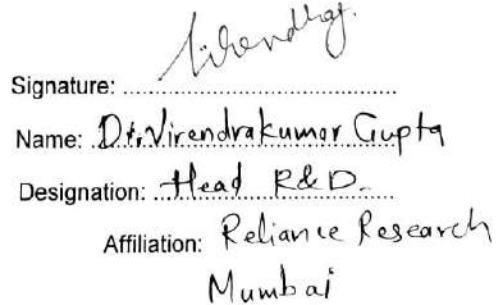 Signature:
Name: Dr. Virendrakumar Gupta
Designation: Head R&D.
Affiliation: Reliance Research
Mumbai